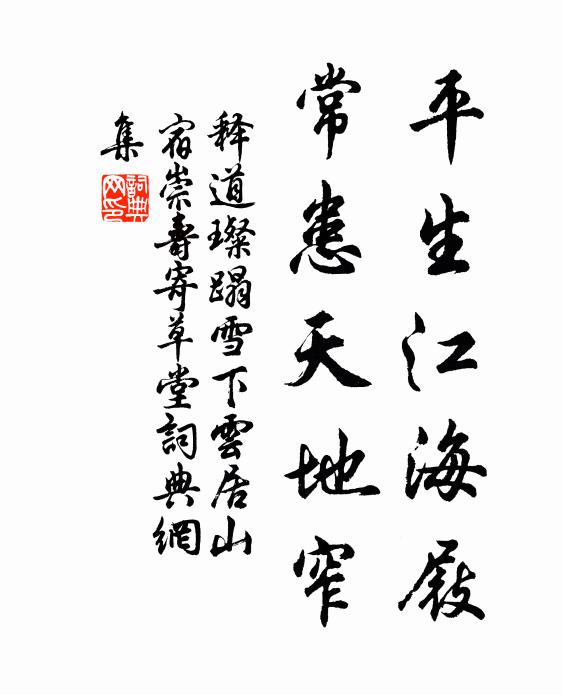 平生江海屐
常患天地窄
释道璨蹋雪下雲居山
宿崇壽寄草堂詞典網
集
詞典
网印